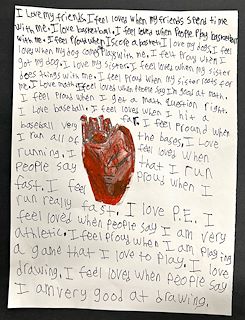 I Love my friends. I feel loves when my friends spend time
with me. I love basketball. I feel loves when People Play basketball
with me. I feel Prowd when I score a basket. I love my dog. I feel
loves when my dog comes Plays with me. I felt Prowd when I
got my dog. I love my sister. I feel loves when my sister
does things with me. I feel Prowd when my sister roots for
me. I love math. I feel loves when people say Im good at math.
I feel prowd when I get a math question right.
I love baseball. I feel loves when I hit a
baseball very far. I feel prownd when
I run all of the bases. I love
running. I feel loves when
people say that I run
fast. I feel prows when I
run really fast. I love P.E. I
feel loves when people say I am very
athletic. I feel prowd when I am playing
a game that I love to play. I love
drawing. I feel loves when people say
I am very good at drawing.